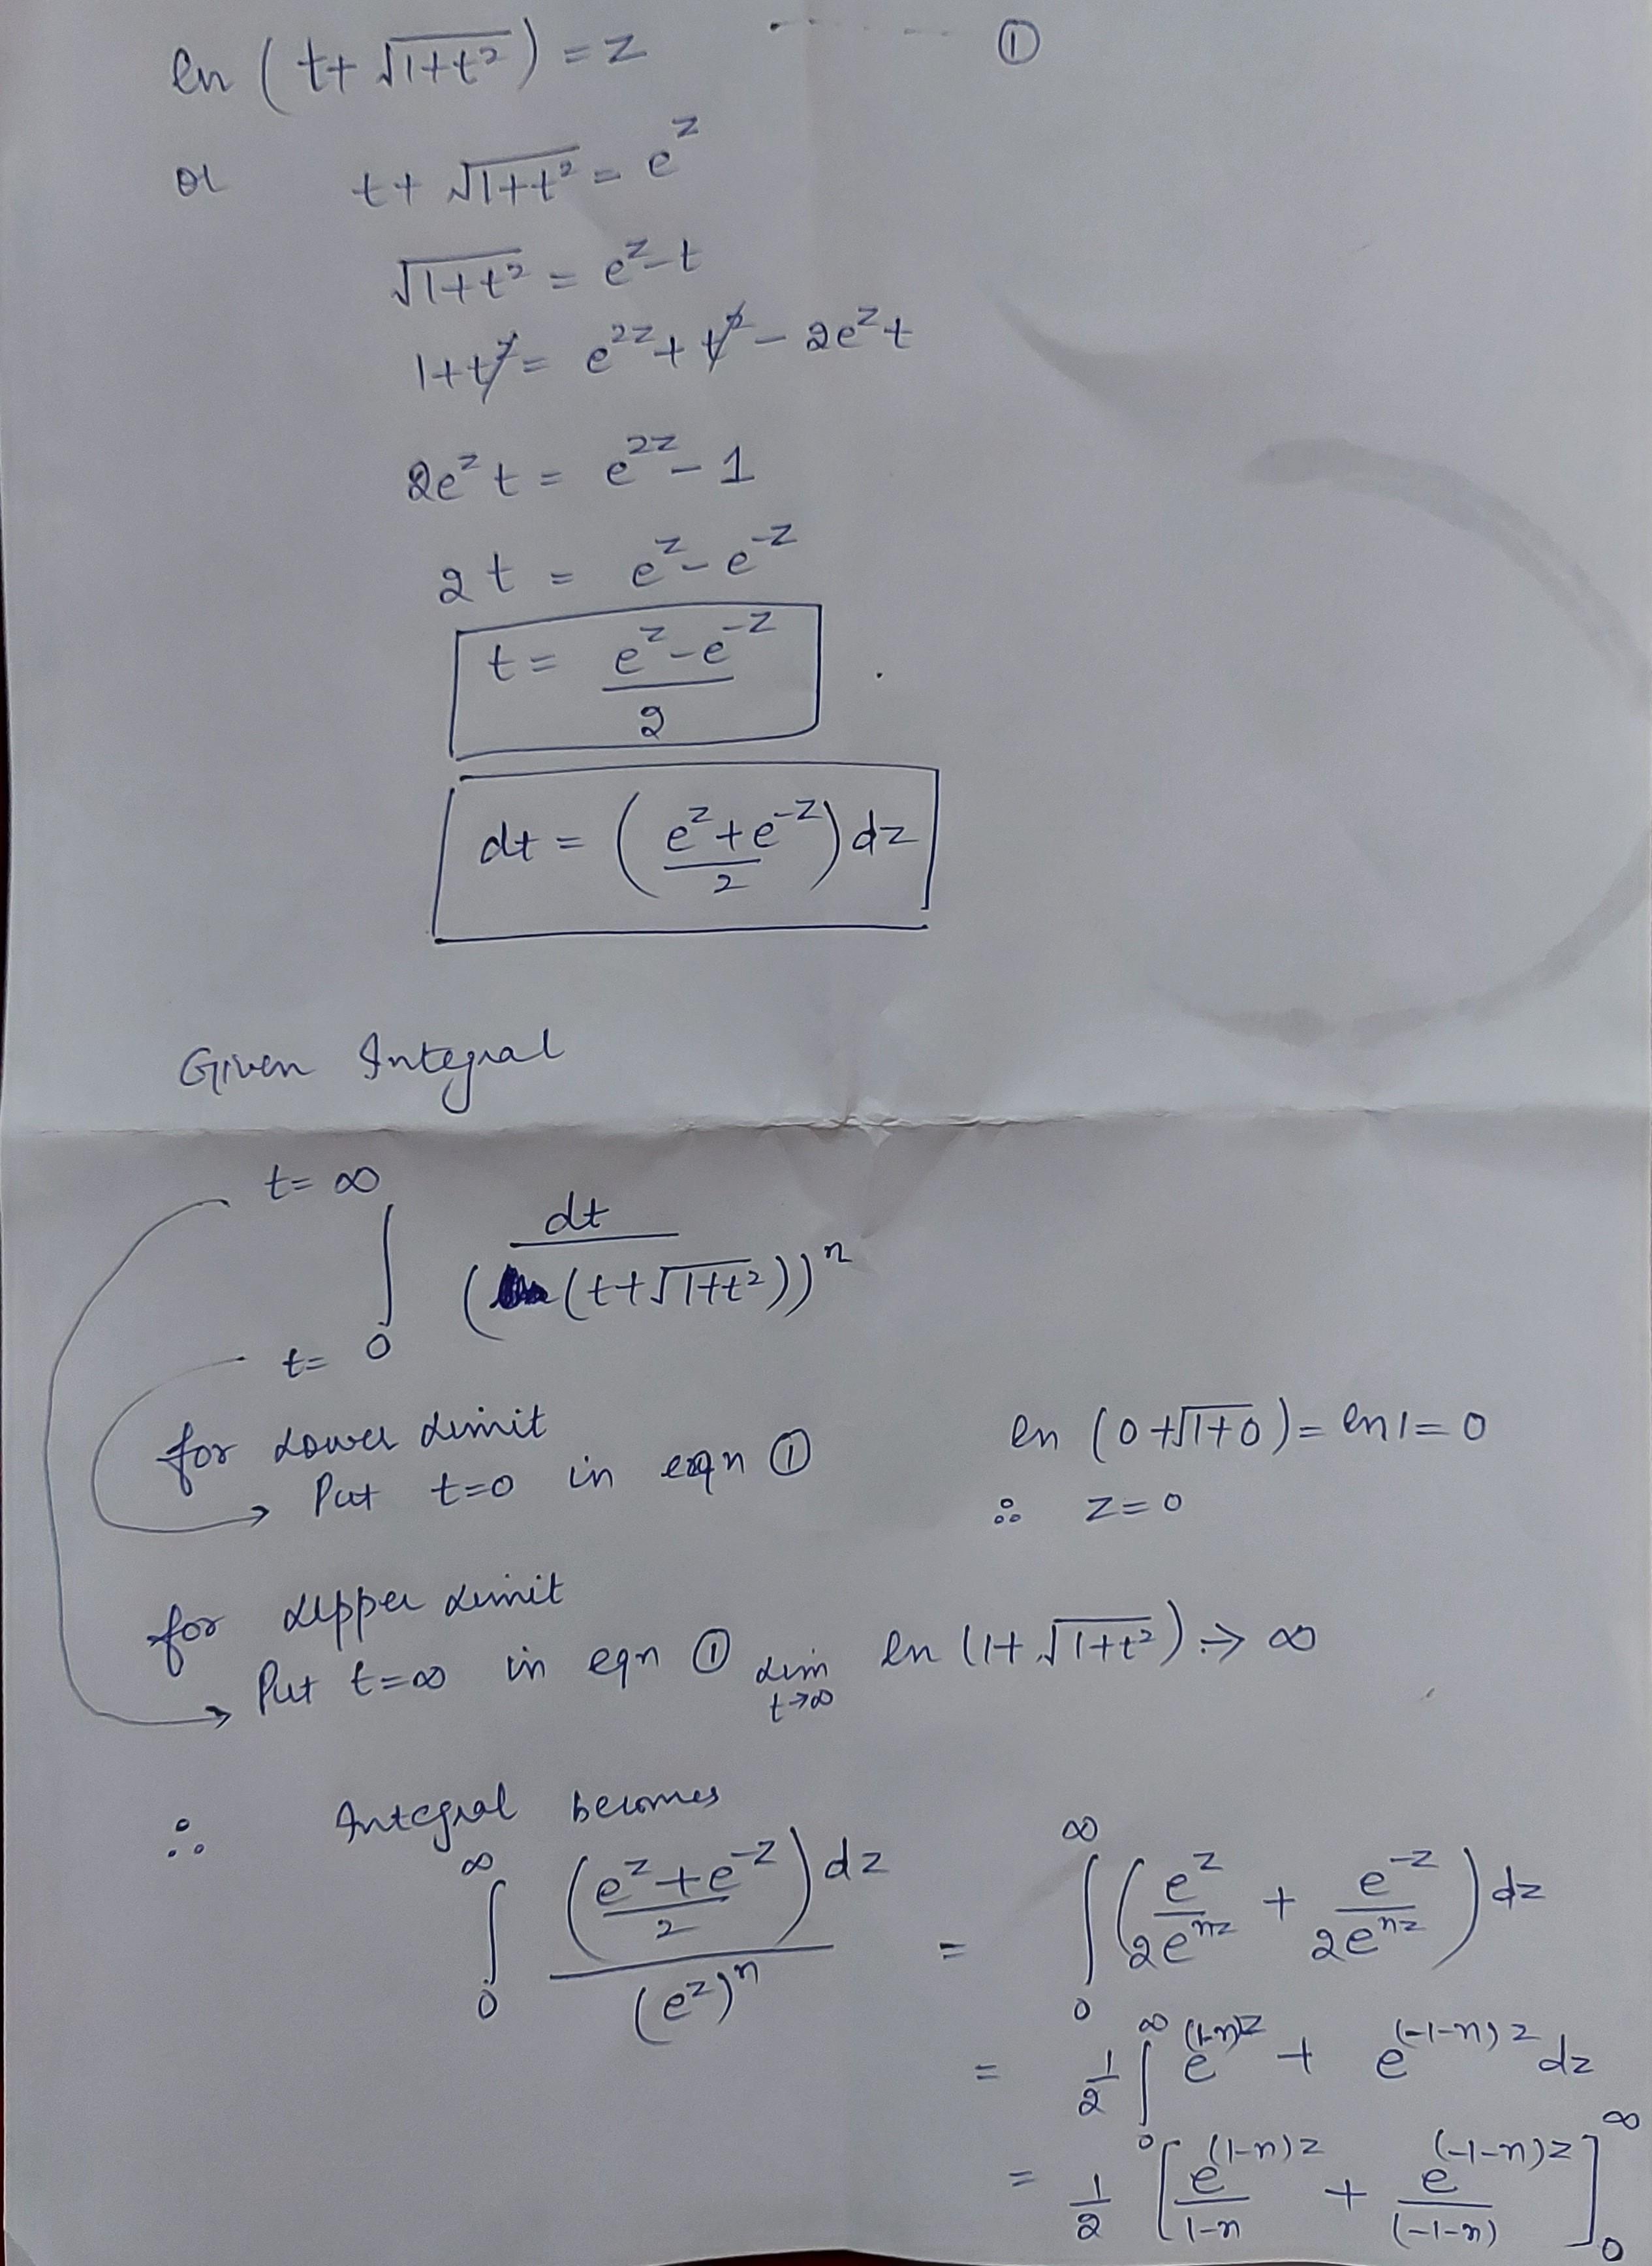 ln (t+ √1+t²) = z ........ ①
or t+ √1+t² = e^z
√1+t² = e^z-t
1+t² = e^2z + t² - 2e^z t
2e^z t = e^2z - 1
2t = e^z - e^-z
t = (e^z - e^-z)/2
dt = ((e^z + e^-z)/2) dz
Given Integral
t=∞
∫ dt/((t+√1+t²))^n
t= 0
for Lower Limit
Put t=0 in eqn ① ln (0+√1+0) = ln1=0
∴ z=0
for Upper Limit
Put t=∞ in eqn ① Lim t→∞ ln (1+ √1+t²) → ∞
∴ Integral becomes
∫_0^∞ ((e^z+e^-z)/2) dz/(e^z)^n = ∫_0^∞ (e^z/2e^nz + e^-z/2e^nz) dz
= 1/2 ∫_0^∞ e^(1-n)z + e^(-1-n)z dz
= 1/2 [e^(1-n)z/1-n + e^(-1-n)z/(-1-n)]_0^∞